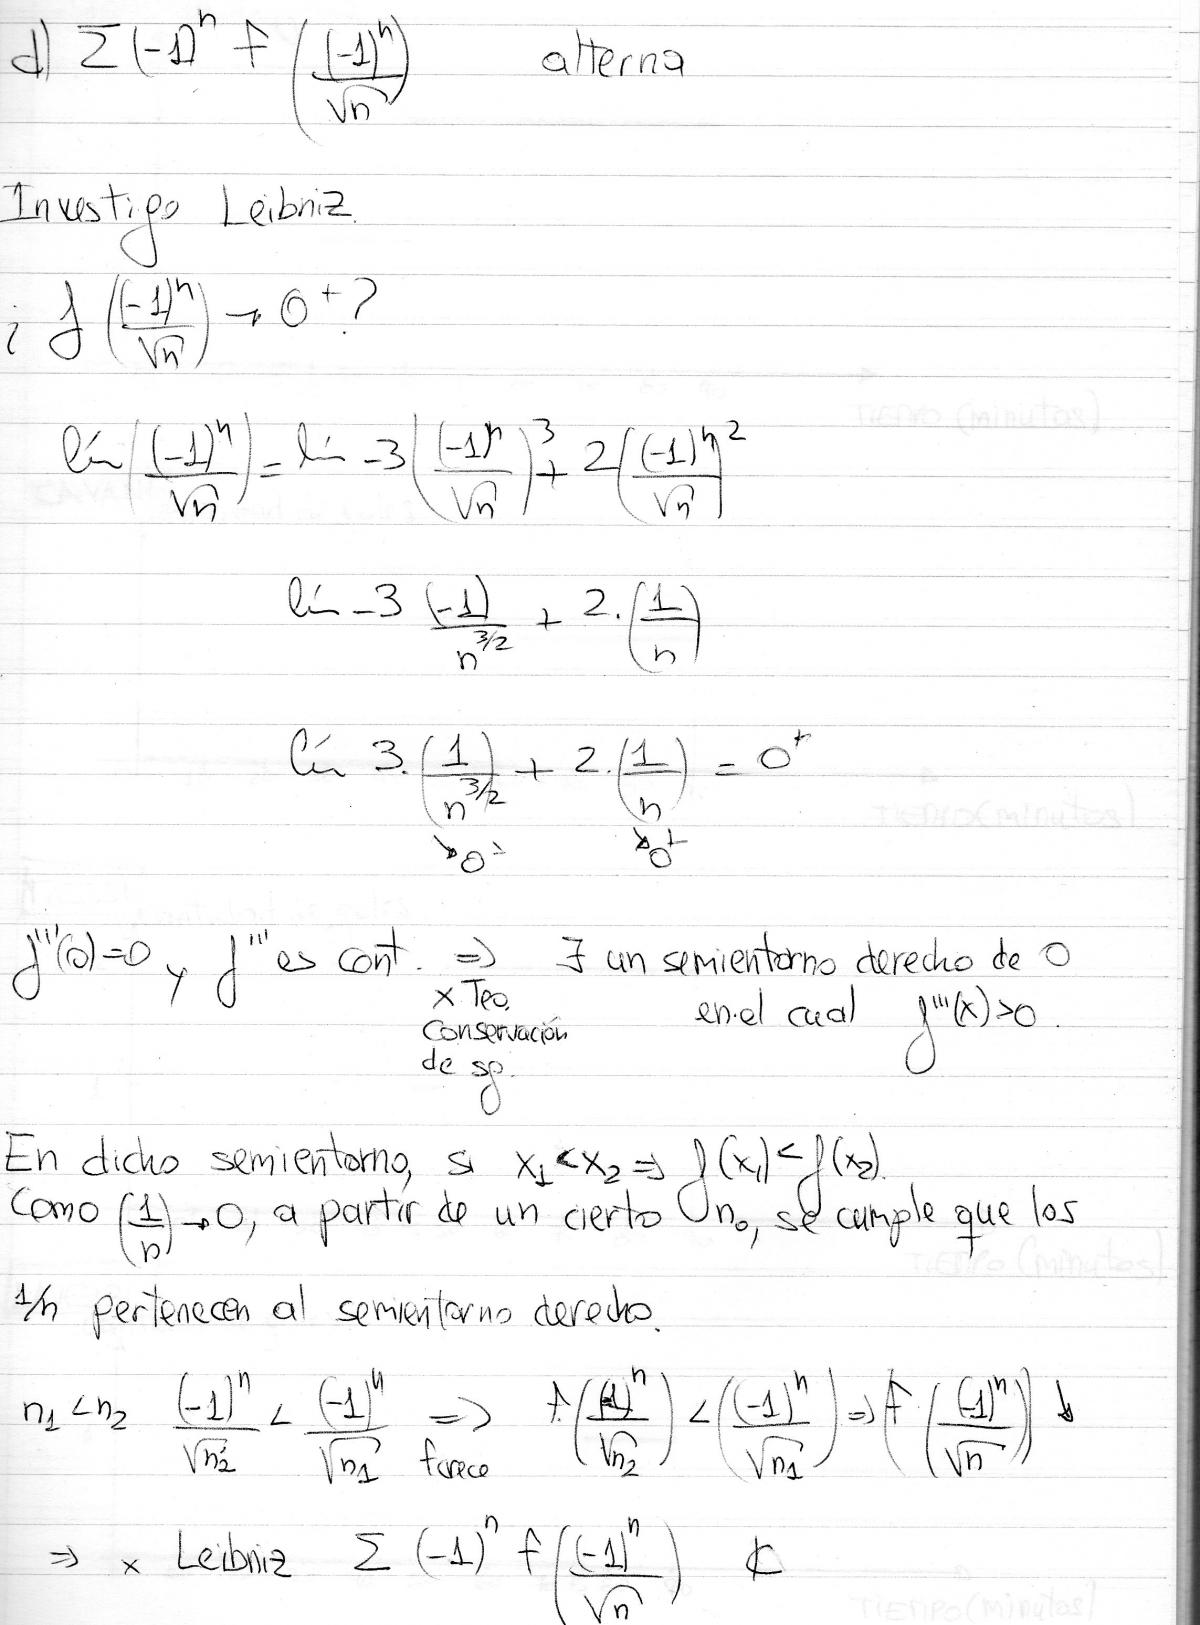 d) Σ (-1)^n f ((-1)^n/√n) alterna
Investigo Leibniz.
¿ f ((-1)^n/√n) → 0⁺ ?
lím ((-1)^n/√n) = lím -3 ((-1)^n/√n)^3 + 2 ((-1)^n/√n)^2
lím -3 (-1)/n^(3/2) + 2. (1/n)
lím 3. (1/n^(3/2)) + 2. (1/n) = 0⁺
↘0⁺ ↘0⁺
f'''(0)=0 y f''' es cont. ⇒ ∃ un semientorno derecho de 0
x Teo. en el cual f'''(x)>0.
conservación
de sg.
En dicho semientorno, si x₁<x₂ ⇒ f(x₁)<f(x₂).
Como (1/n) → 0, a partir de un cierto n₀, se cumple que los
1/n pertenecen al semientorno derecho.
n₁<n₂ (-1)^n/√n₂ < (-1)^n/√n₁ ⇒ f ((-1)^n/√n₂) < ((-1)^n/√n₁) ⇒ f ((-1)^n/√n) ↓
f crece
⇒ x Leibniz Σ (-1)^n f ((-1)^n/√n) C